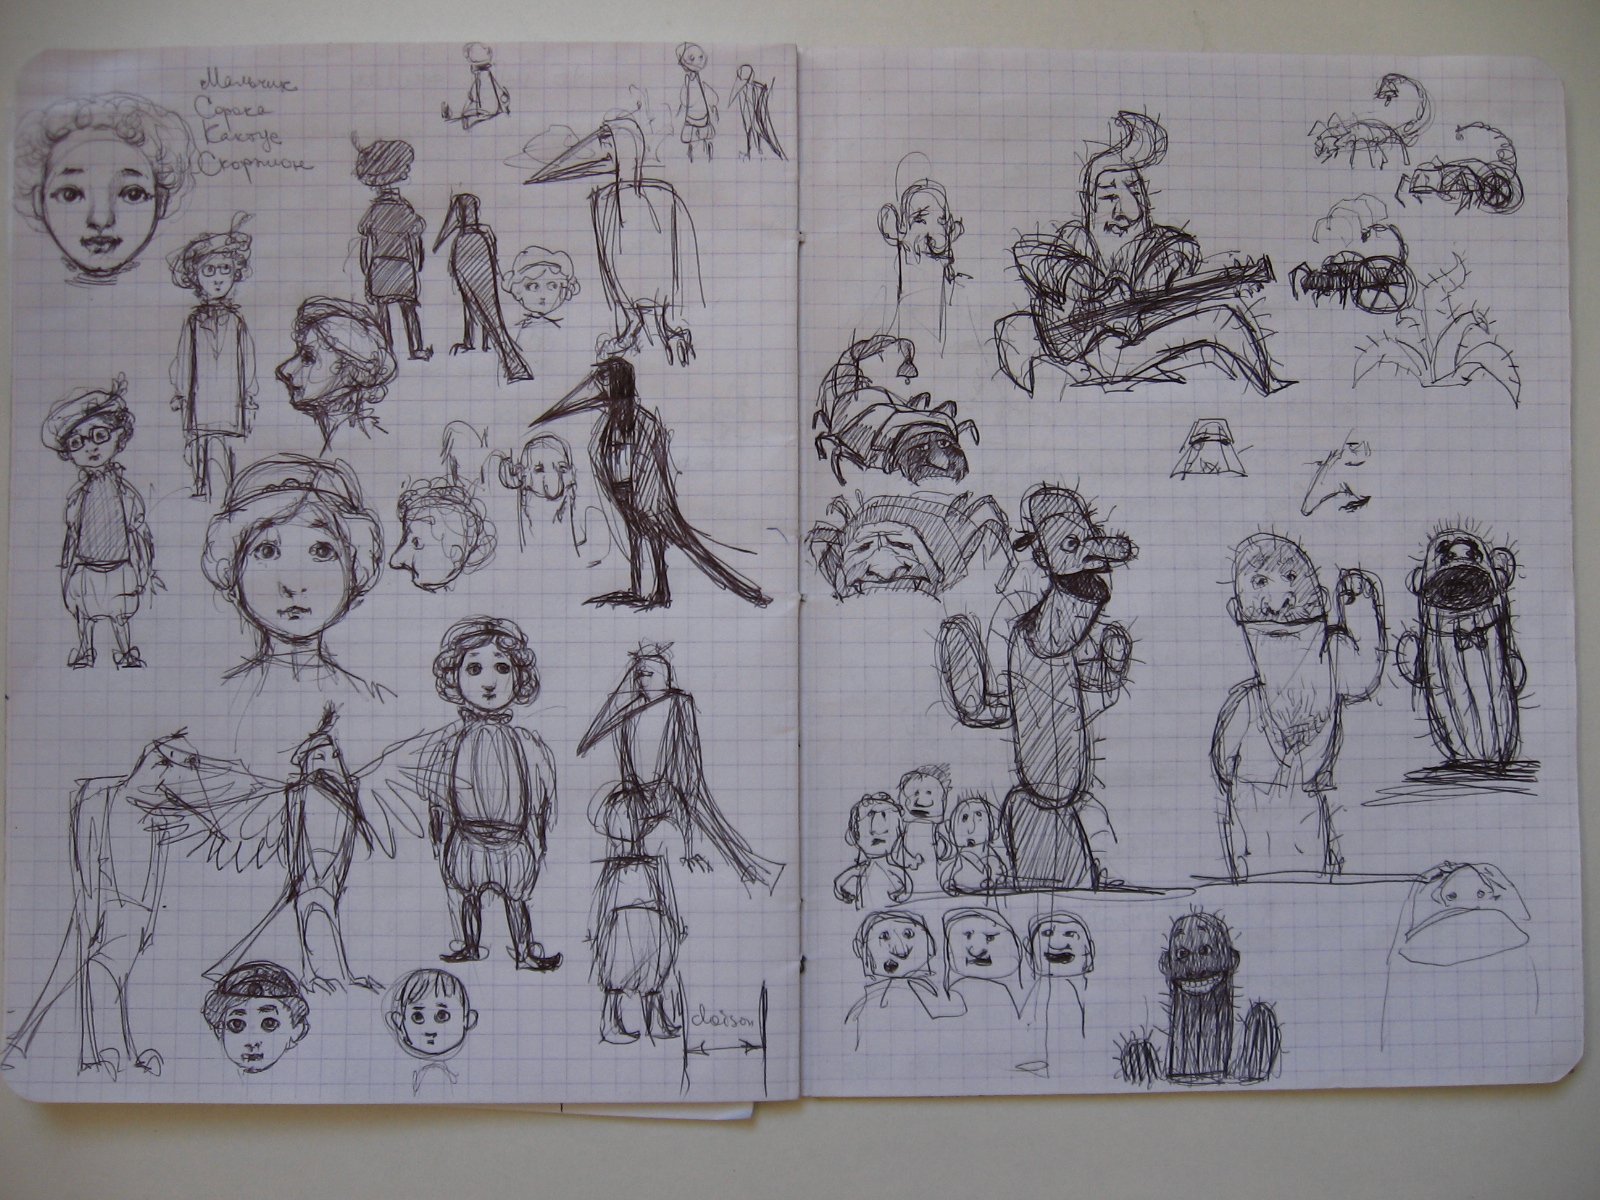 Мальчик
Сорока
Кактус
Скорпион
cloison